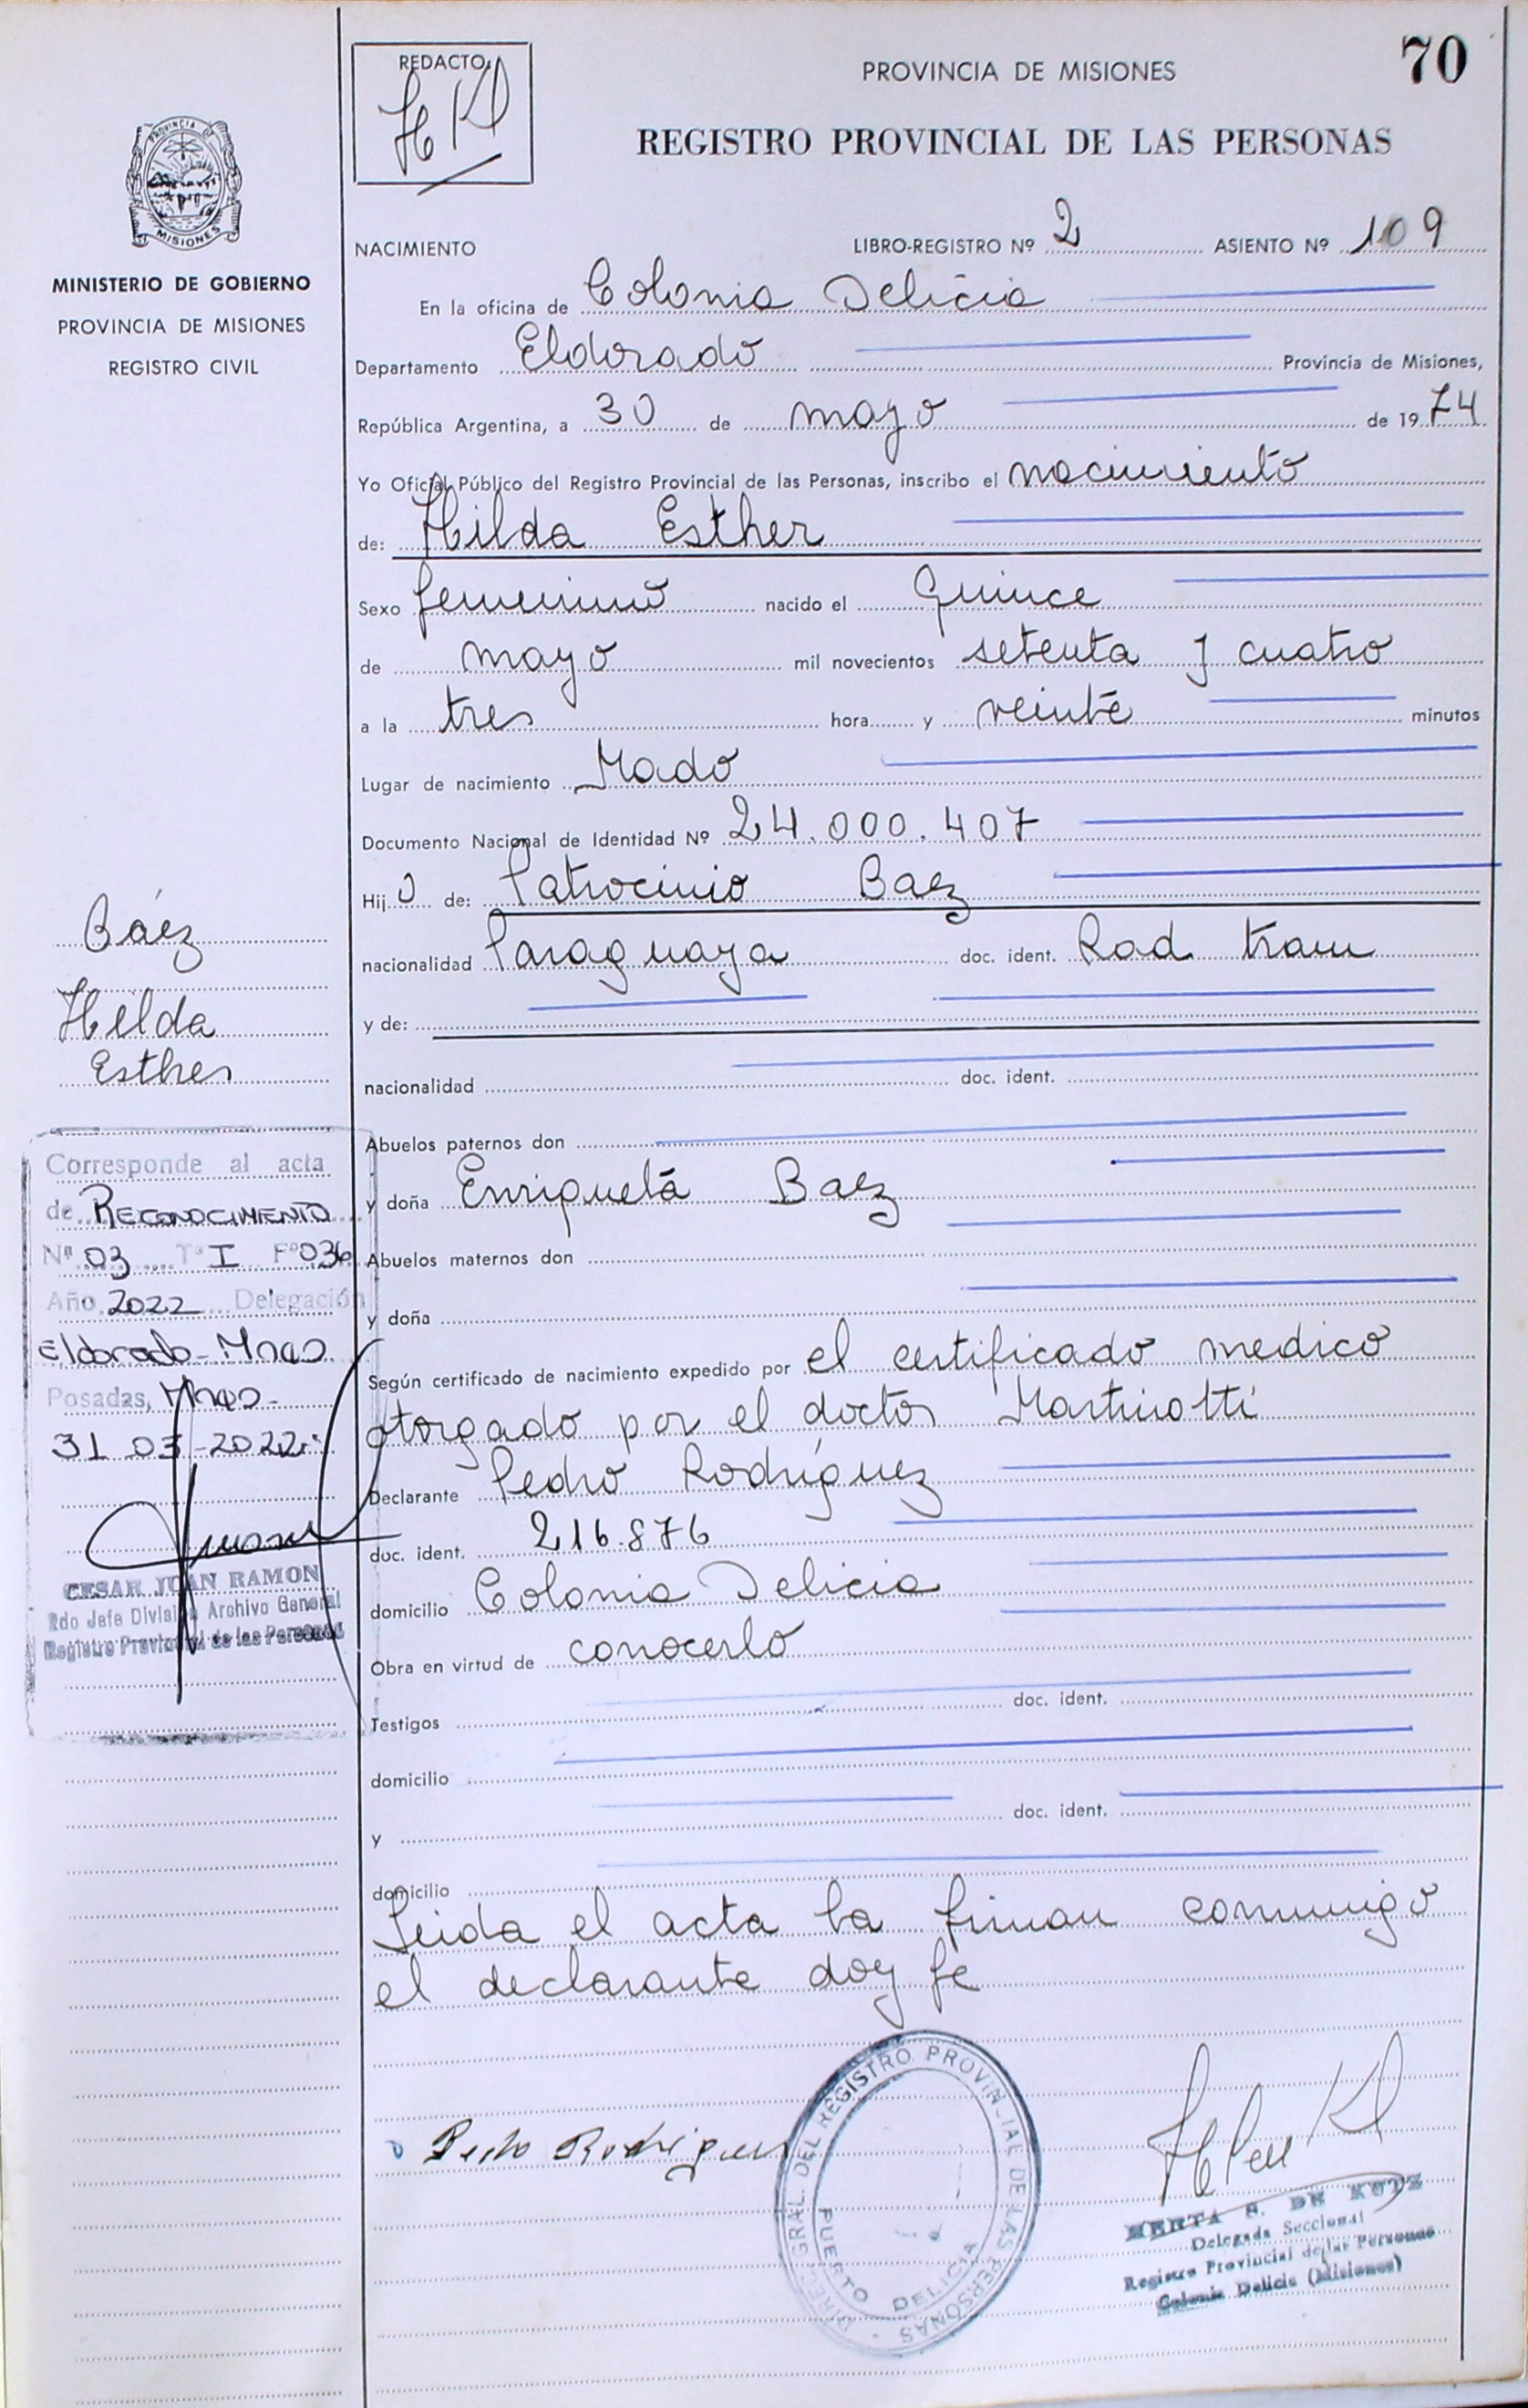 REDACTO:
HKl
PROVINCIA DE MISIONES
70
REGISTRO PROVINCIAL DE LAS PERSONAS
PROVINCIA
MISIONES
MINISTERIO DE GOBIERNO
PROVINCIA DE MISIONES
REGISTRO CIVIL
NACIMIENTO LIBRO-REGISTRO Nº 2 ASIENTO Nº 109
En la oficina de Colonia Delicia
Departamento Eldorado Provincia de Misiones,
República Argentina, a 30 de mayo de 1974
Yo Oficial Público del Registro Provincial de las Personas, inscribo el nacimiento
de: Hilda Esther
Sexo femenino nacido el Quince
de mayo mil novecientos setenta y cuatro
a la tres hora y veinte minutos
Lugar de nacimiento Mado
Documento Nacional de Identidad Nº 24.000.407
Hijo de: Patrocinio Baez
nacionalidad Paraguaya doc. ident. Rad tram
y de:
nacionalidad doc. ident.
Abuelos paternos don
y doña Enriqueta Baez
Abuelos maternos don
y doña
Según certificado de nacimiento expedido por el certificado medico
otorgado por el doctor Martinotti
Declarante Pedro Rodríguez
doc. ident. 216.876
domicilio Colonia Delicia
Obra en virtud de conocerlo
Testigos doc. ident.
domicilio
y doc. ident.
domicilio
Leida el acta la firman conmigo
el declarante doy fe
Báez
Hilda
Esther
Corresponde al acta
de RECONOCIMIENTO
Nº 03 Tº I Fº 036
Año 2022 Delegación
Eldorado - Mnes
Posadas, Mnes -
31 03 - 2022
CESAR JUAN RAMON
Rdo Jefe División Archivo General
Registro Provincial de las Personas
Pedro Rodriguez
DIREC. GRAL. DEL REGISTRO PROVINCIAL DE LAS PERSONAS
PUERTO DELICIA
HERTA S. DE KUTZ
Delegada Seccional
Registro Provincial de las Personas
Colonia Delicia (Misiones)